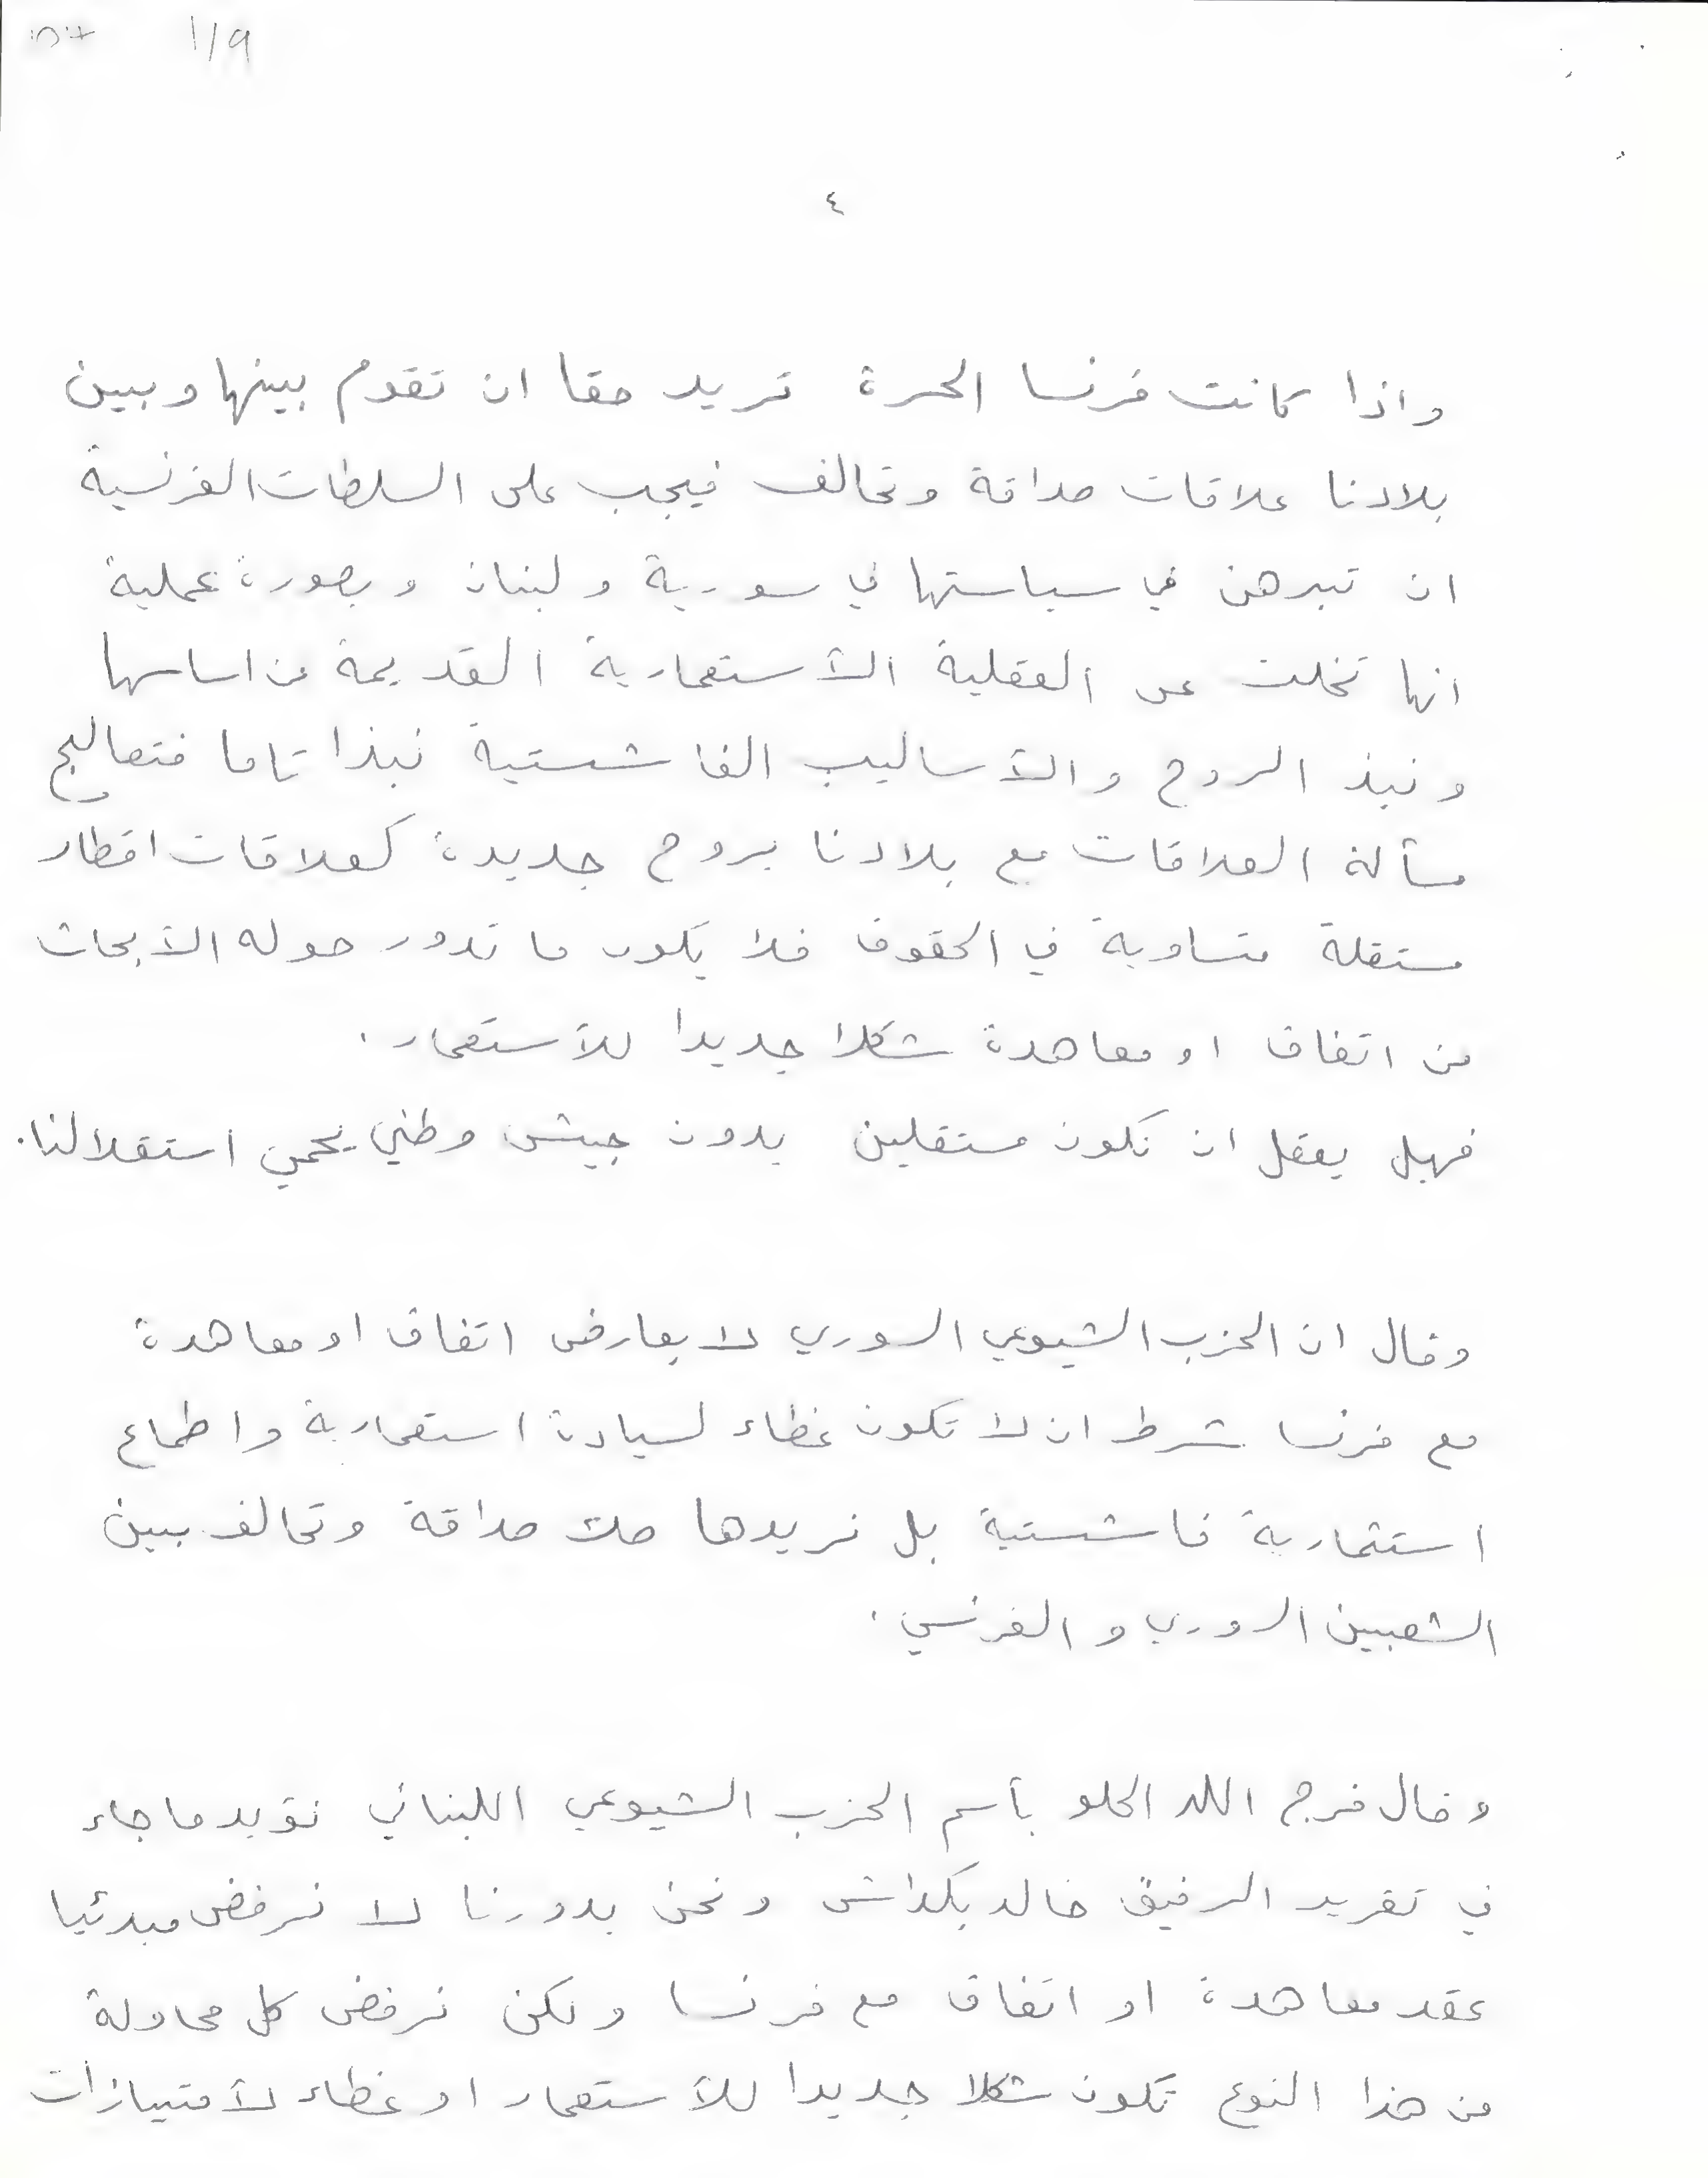 1/9
٤
واذا كانت فرنسا الحرة تريد حقا ان تقوم بينها وبين
بلادنا علاقات صداقة وتحالف فيجب على السلطات الفرنسية
ان تبرهن في سياستها في سورية ولبنان وبصورة عملية
انها تخلت عن العقلية الأستعمارية القديمة من اساسها
ونبذ الروح والأساليب الفاشستية نبذا تاما فتعاليج
مسألة العلاقات مع بلادنا بروح جديدة كعلاقات اقطار
مستقلة متساوية في الحقوق فلا يكون ما تدور حوله الأبحاث
من اتفاق او معاهدة شكلا جديدا للأستعمار.
فهل يعقل ان نكون مستقلين بدون جيش وطني يحمي استقلالنا.
وقال ان الحزب الشيوعي السوري لا يعارض اتفاق او معاهدة
مع فرنسا شرط ان لا تكون غطاء لسيادة استعمارية واطماع
استثمارية فاشستية بل نريدها صك صداقة وتحالف بين
الشعبين السوري والفرنسي.
وقال فرج الله الحلو بأسم الحزب الشيوعي اللبناني نؤيد ما جاء
في تقرير الرفيق خالد بكداش ونحن بدورنا لا نرفض مبدئيا
عقد معاهدة او اتفاق مع فرنسا ولكن نرفض كل محاولة
من هذا النوع تكون شكلا جديدا للأستعمار او غطاء لأمتيازات